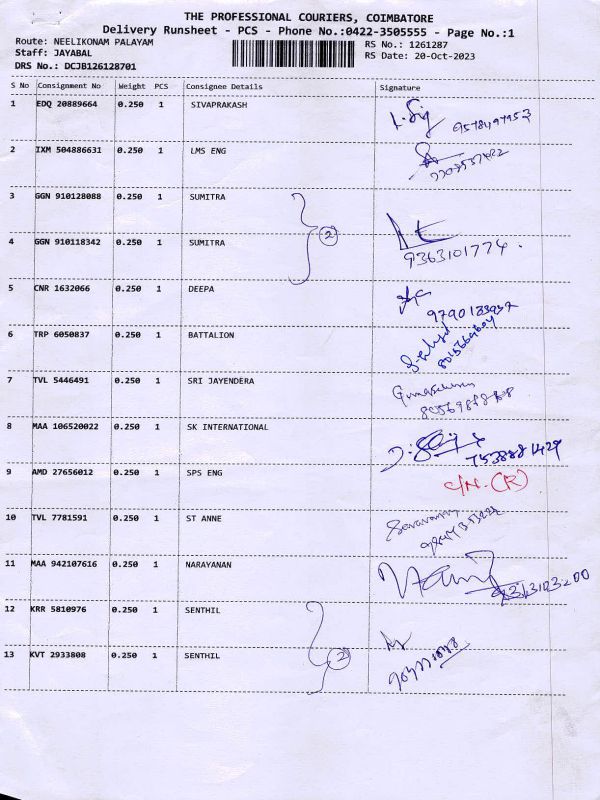 THE PROFESSIONAL COURIERS, COIMBATORE
Delivery Runsheet - PCS - Phone No.:0422-3505555 - Page No.:1
Route: NEELIKONAM PALAYAM
RS No.: 1261287
Staff: JAYABAL
RS Date: 20-Oct-2023
DRS No.: DCJB126128701
S No Consignment No Weight PCS Consignee Details Signature
1 EDQ 20889664 0.250 1 SIVAPRAKASH
9578497953
2 IXM 504886631 0.250 1 LMS ENG
3 GGN 910128088 0.250 1 SUMITRA
2
4 GGN 910118342 0.250 1 SUMITRA
9363101774.
5 CNR 1632066 0.250 1 DEEPA
6 TRP 6050837 0.250 1 BATTALION
7 TVL 5446491 0.250 1 SRI JAYENDERA
8 MAA 106520022 0.250 1 SK INTERNATIONAL
7538881429
9 AMD 27656012 0.250 1 SPS ENG
C/N. (R)
10 TVL 7781591 0.250 1 ST ANNE
11 MAA 942107616 0.250 1 NARAYANAN
12 KRR 5810976 0.250 1 SENTHIL
2
13 KVT 2933808 0.250 1 SENTHIL